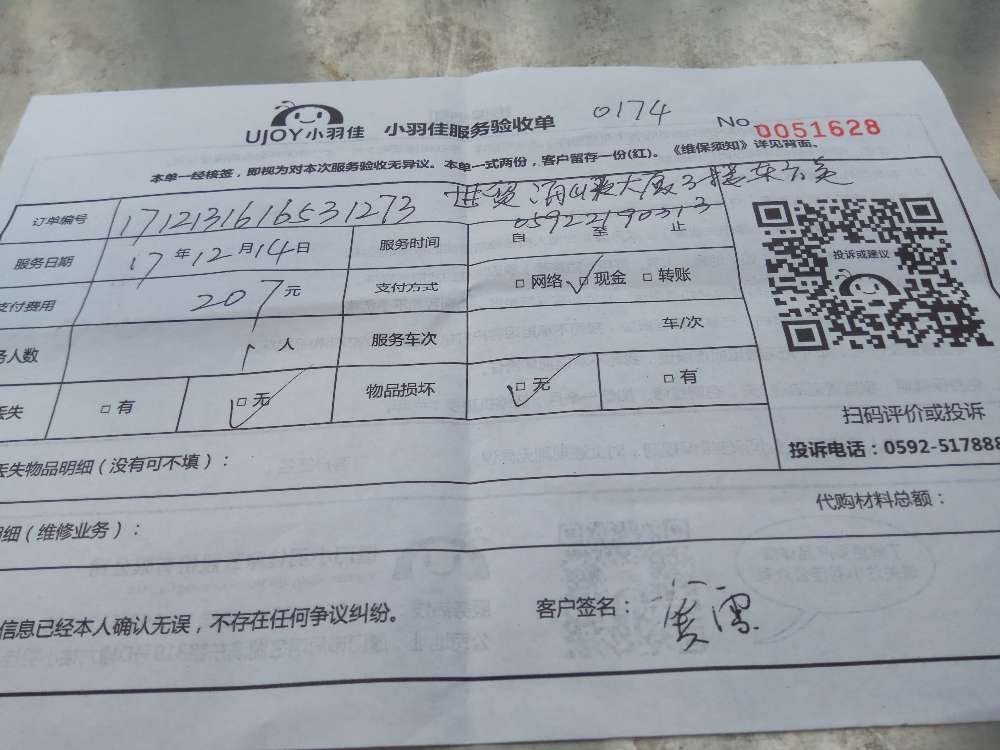 UJOY小羽佳 小羽佳服务验收单 0174 No. 0051628
本单一经核签，即视为对本次服务验收无异议。本单一式两份，客户留存一份(红)。《维保须知》详见背面。
订单编号 1712131616531273
05922190313
服务日期 17年12月14日 服务时间 自 至 止
支付费用 207元 支付方式 □ 网络 □ 现金 □ 转账
务人数 1人 服务车次 车/次
丢失 □ 有 □ 无 物品损坏 □ 无 □ 有
投诉或建议
扫码评价或投诉
投诉电话：0592-517888
丢失物品明细（没有可不填）：
明细（维修业务）： 代购材料总额：
信息已经本人确认无误，不存在任何争议纠纷。 客户签名：